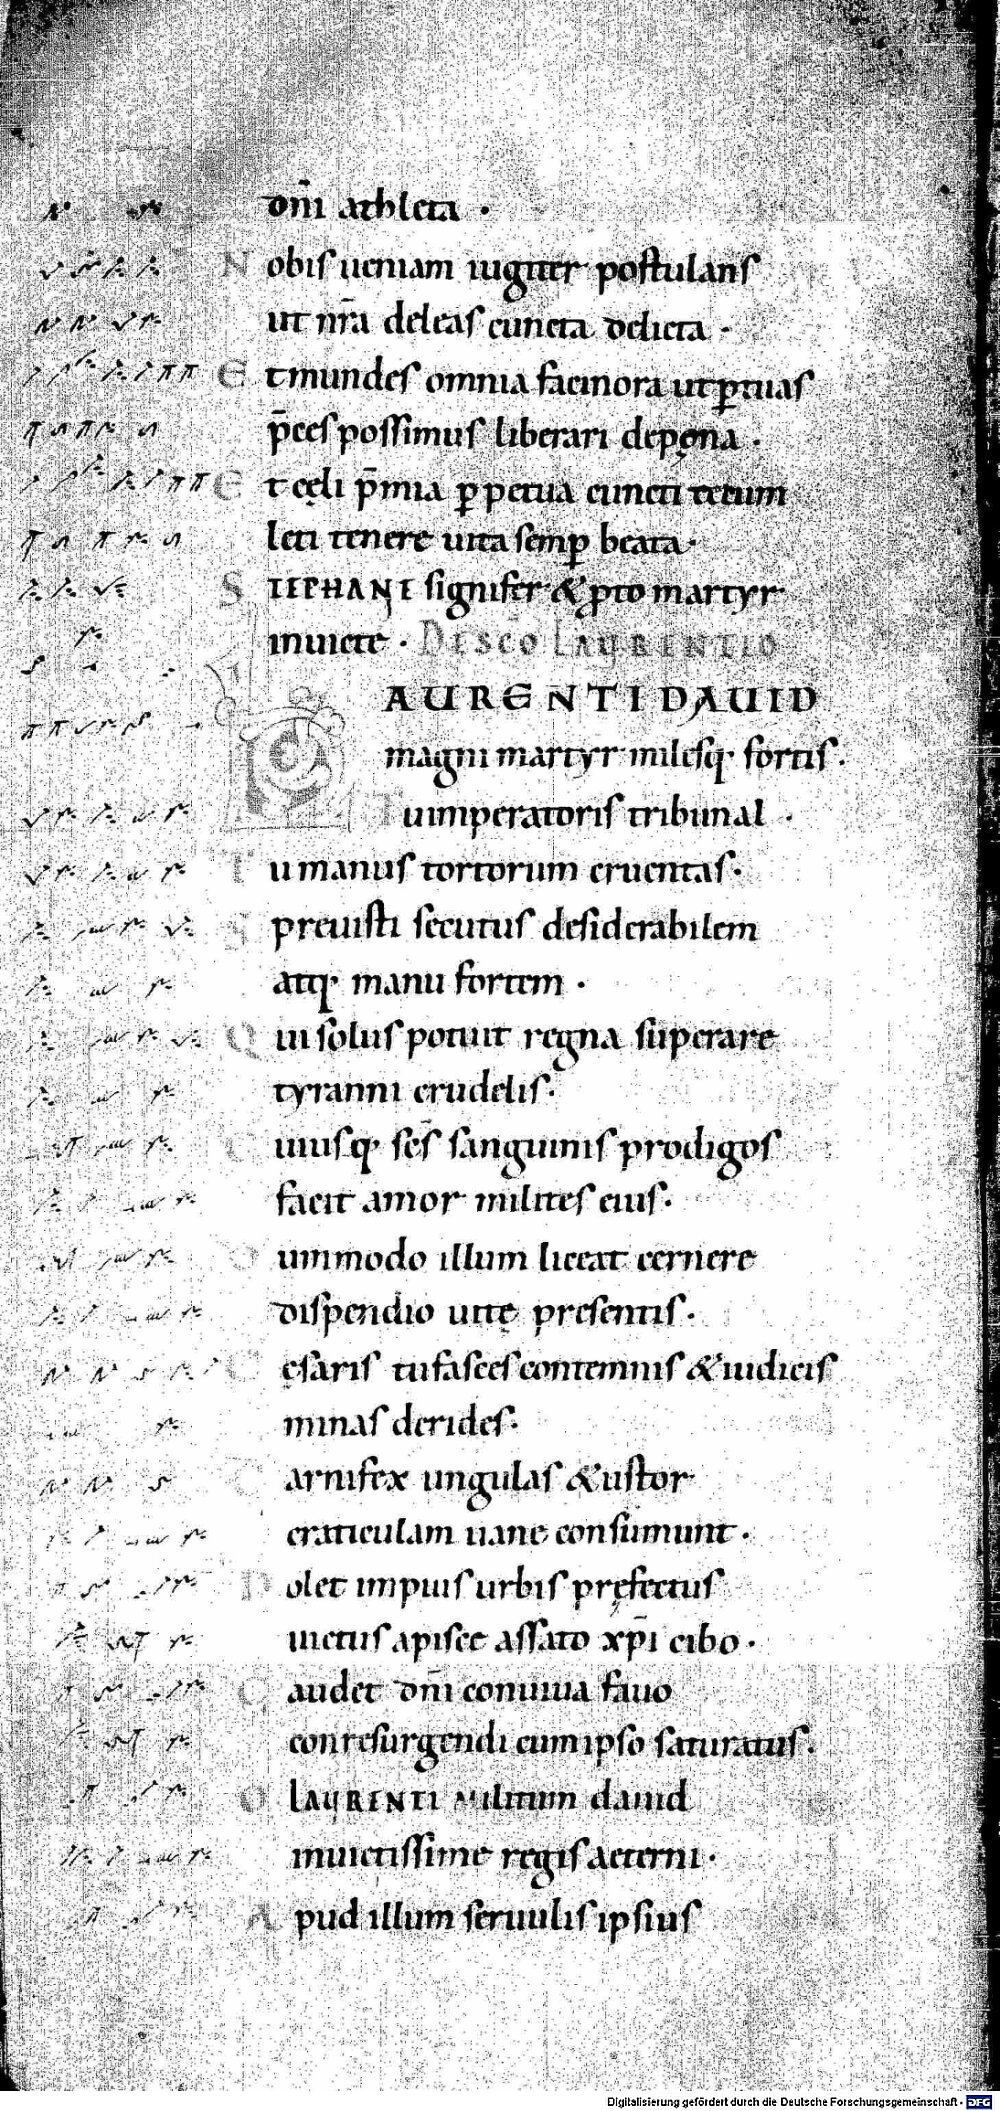 dnī athleta ·
Nobis ueniam iugiter postulans
ut nrā deleas cuncta delicta ·
Et mundes omnia facinora ut ꝑ tuas
p̄ces possimus liberari de pęna ·
Et cęli p̄mia ꝑpetua cuncti tecum
leti tenere uita semꝑ beata ·
STEPHANE signifer & pto martyr
inuicte · DE SCO LAURENTIO
LAURENTI DAUID
magni martyr milesq· fortis ·
Tu imperatoris tribunal ·
Tu manus tortorum cruentas ·
Spreuisti secutus desiderabilem
atq· manu fortem ·
Qui solus potuit regna superare
tyranni crudelis ·
Cuiusq· sc̄s sanguinis prodigos
facit amor milites eius ·
Dummodo illum liceat cernere
dispendio uitę presentis ·
Cęsaris tu fasces contemnis & iudicis
minas derides ·
Carnifex ungulas & ustor
craticulam uane consumunt ·
Dolet impius urbis pręfectus
uictus a pisce assato xp̄i cibo ·
Gaudet dn̄i conuiua fauo
conresurgendi cum ipso saturatus ·
O LAURENTI militum dauid
inuictissime regis aeterni ·
Apud illum seruulis ipsius
Digitalisierung gefördert durch die Deutsche Forschungsgemeinschaft · DFG